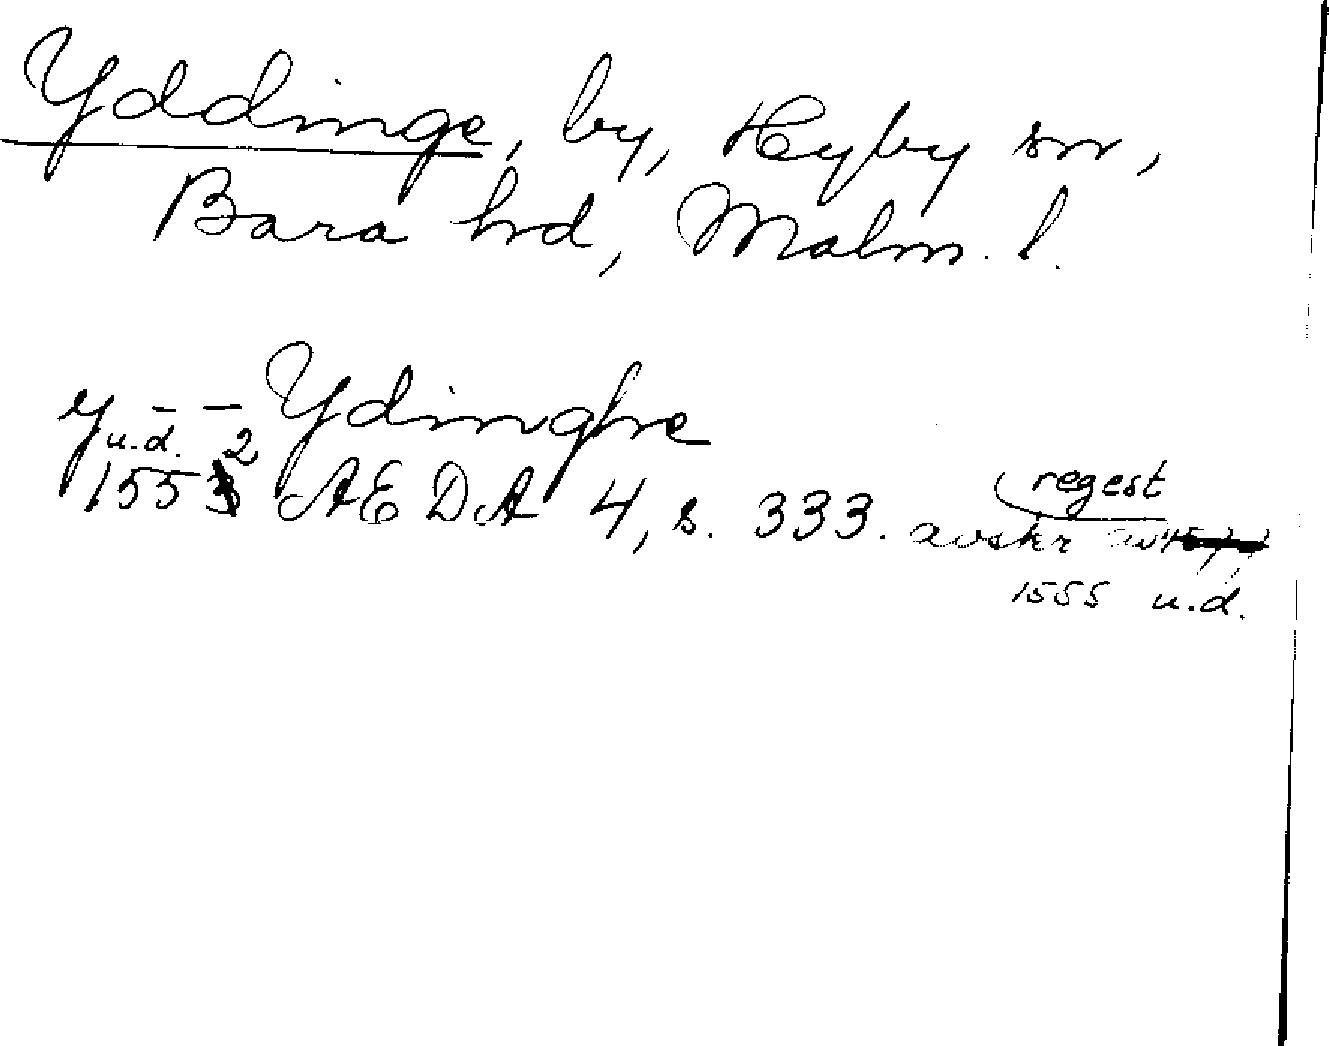 Yddinge, by, Hyby sn,
Bara hd, Malm. l.
Y – – Ydinghe
u.d. 2
1553 ÆDA 4, s. 333. avskr
regest
1555 u.d.